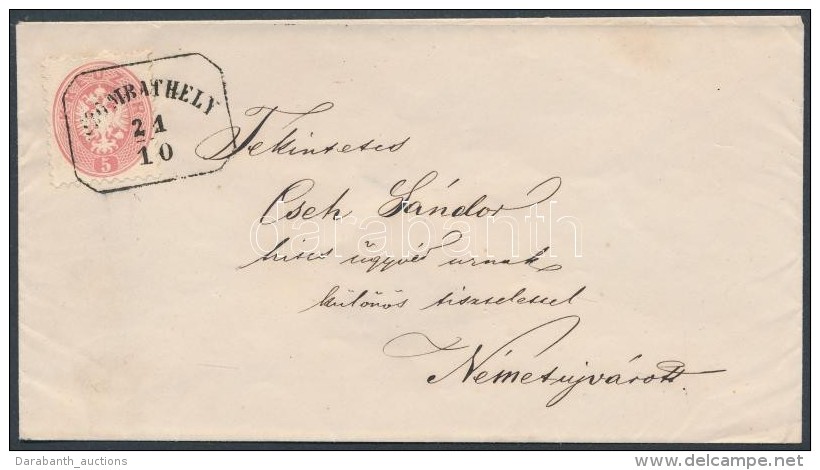 SZOMBATHELY
21
10
5
Tekintetes
Cseh Sándor
hites ügyvéd urnak
különös tisztelettel
Németujvárott.
darabanth
Darabanth_auctions
delcampe.net